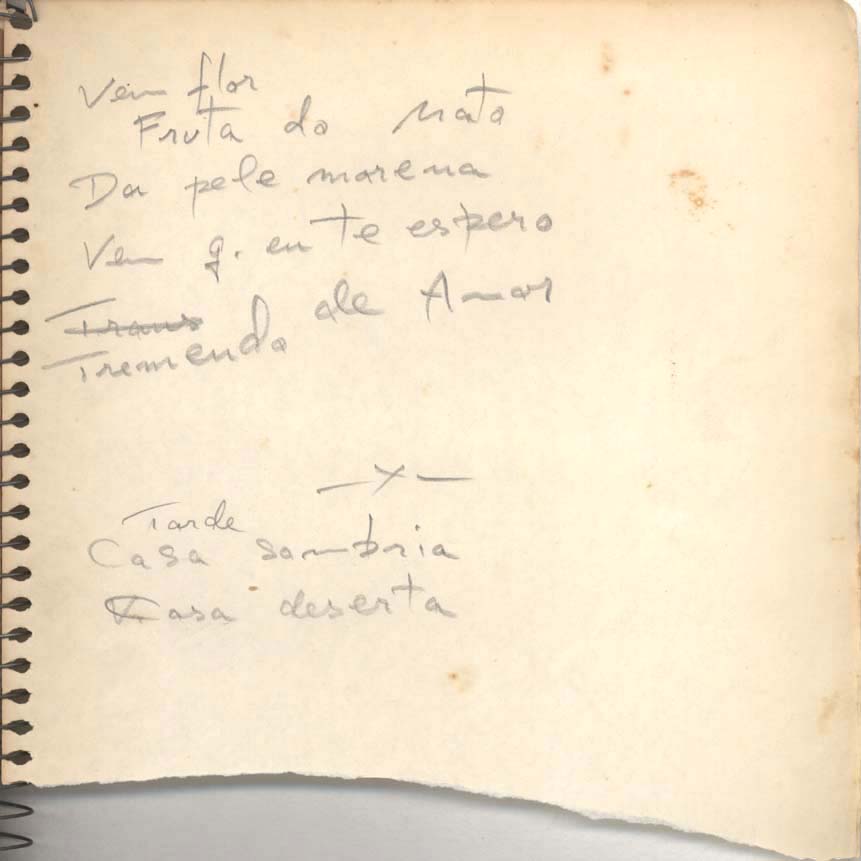 Vem flor
Fruta do mato
Da pele morena
Vem q. eu te espero
Trans
Tremendo de Amor
—x—
Tarde
Casa sombria
Casa deserta